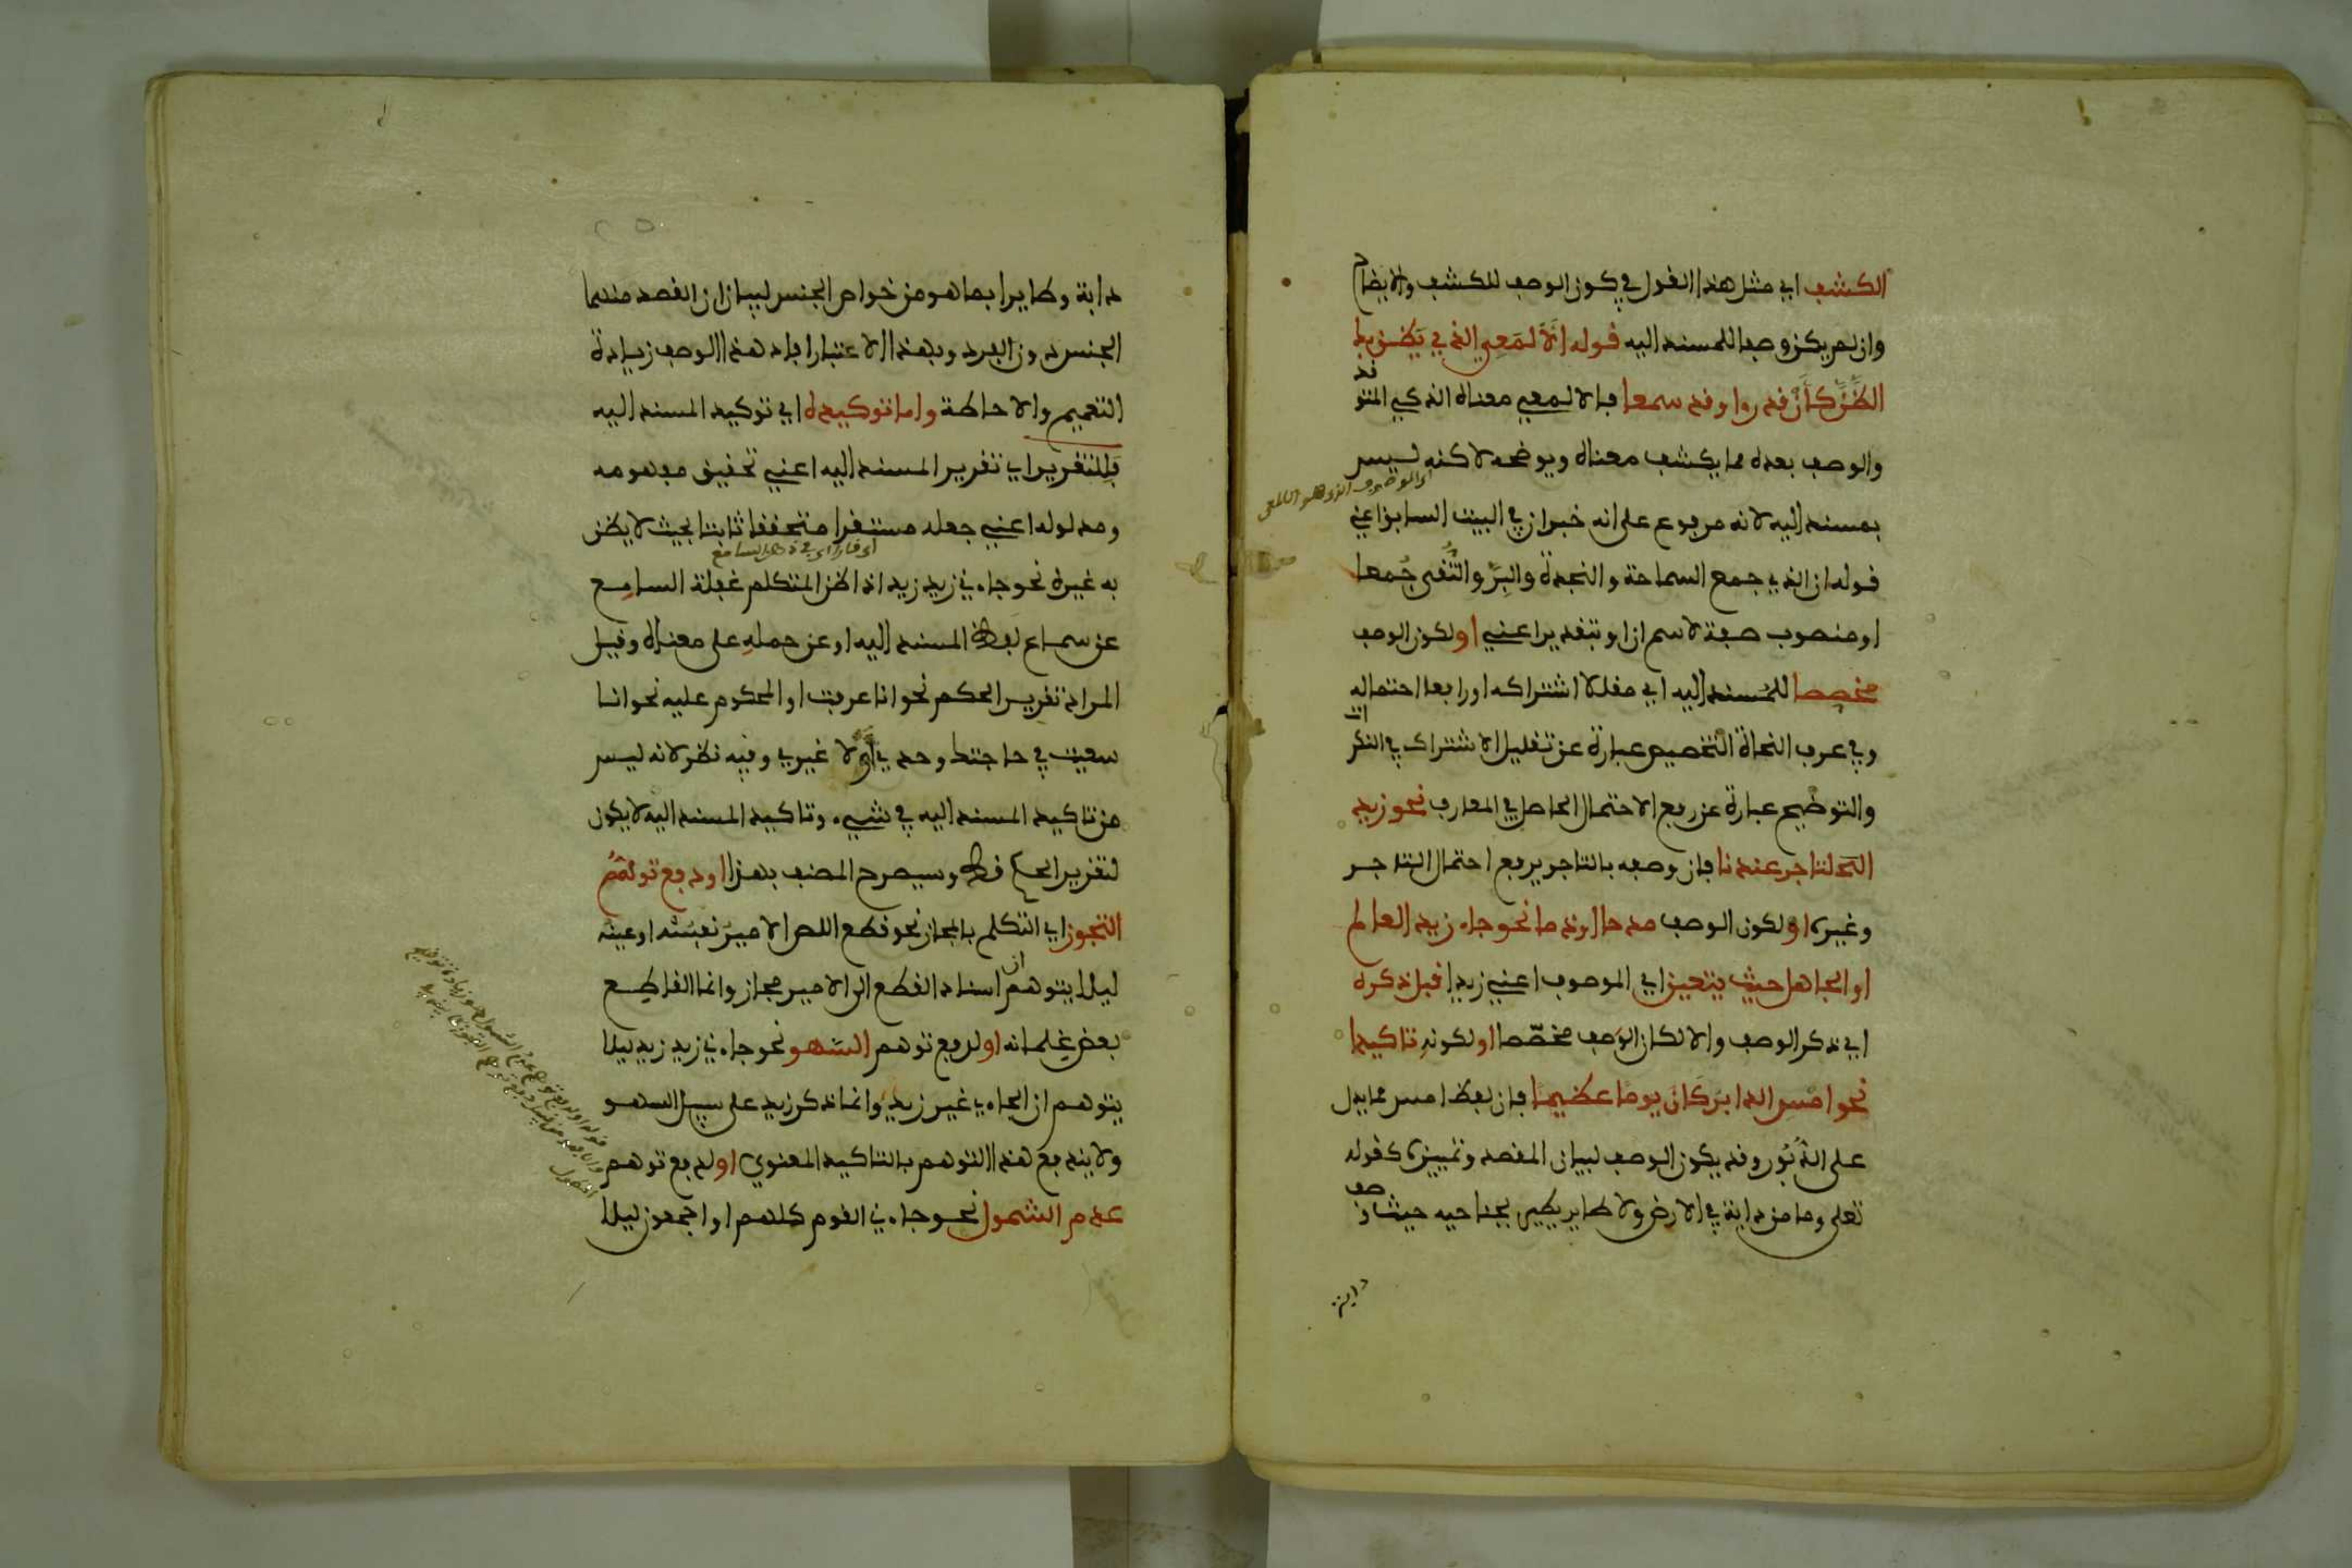 الكشف اي مثل هذا القول في كون الوصف للكشف والايضاح
وان لم يكن وصفا للمسند اليه قوله الالمعي الذي يظن بك
الظن كان قد راى وقد سمعا فالالمعي معناه الذكي المتوقد
والوصف بعده مما يكشف معناه ويوضحه لاكنه ليس
اي الموصوف الذي هو الالمعي
بمسند اليه لانه مرفوع على انه خبر ان في البيت السابق اعني
قوله ان الذي جمع السماحة والنجدة والبر والتقى جمعا
او منصوب صفة لاسم ان او بتقدير اعني او لكون الوصف
مخصصا للمسند اليه اي مقللا اشتراكه او رافعا احتماله
وفي عرف النحاة التخصيص عبارة عن تقليل الاشتراك في النكرات
والتوضيح عبارة عن رفع الاحتمال الحاصل في المعارف نحو زيد
التاجر عندنا فان وصفه بالتاجر يرفع احتمال التاجر
وغيره او لكون الوصف مدحا او ذما نحو جاءني زيد العالم
او الجاهل حيث يتعين اي الموصوف اعني زيدا قبل ذكره
اي ذكر الوصف والا لكان الوصف مخصصا او لكونه تاكيدا
نحو امس الدابر كان يوما عظيما فان لفظ امس مما يدل
على الدبور وقد يكون الوصف لبيان المقصد وتمييزه كقوله
تعلى وما من دابة في الارض ولا طاير يطير بجناحيه حيث وصف
دابة
دابة وطايرا بما هو من خواص الجنس لبيان ان القصد منهما
الجنس دون الفرد وبهذا الاعتبار افاد هذا الوصف زيادة
التعميم والاحاطة واما توكيده اي توكيد المسند اليه
فللتقرير اي تقرير المسند اليه اعني تحقيق مفهومه
ومدلوله اعني جعله مستقرا متحققا ثابتا بحيث لا يظن
اي قارا اي في ذهن السامع
به غيره نحو جاءني زيد زيد اذا ظن المتكلم غفلة السامع
عن سماع لفظ المسند اليه او عن حمله على معناه وقيل
المراد تقرير الحكم نحو انا عرفت او المحكوم عليه نحو انا
سعيت في حاجتك وحدي او لا غيري وفيه نظر لانه ليس
من تاكيد المسند اليه في شيء وتاكيد المسند اليه لا يكون
لتقرير الحكم قط وسيصرح المصنف بهذا او دفع توهم
التجوز اي التكلم بالمجاز نحو قطع اللص الامير نفسه او عينه
ليلا يتوهم ان اسناد القطع الى الامير مجاز وانما القاطع
بعض غلمانه او لدفع توهم السهو نحو جاءني زيد زيد ليلا
يتوهم ان الجاءي غير زيد وانما ذكر زيد على سبيل السهو
ولا يندفع هذا التوهم بالتاكيد المعنوي او لدفع توهم
عدم الشمول نحو جاءني القوم كلهم او اجمعون ليلا